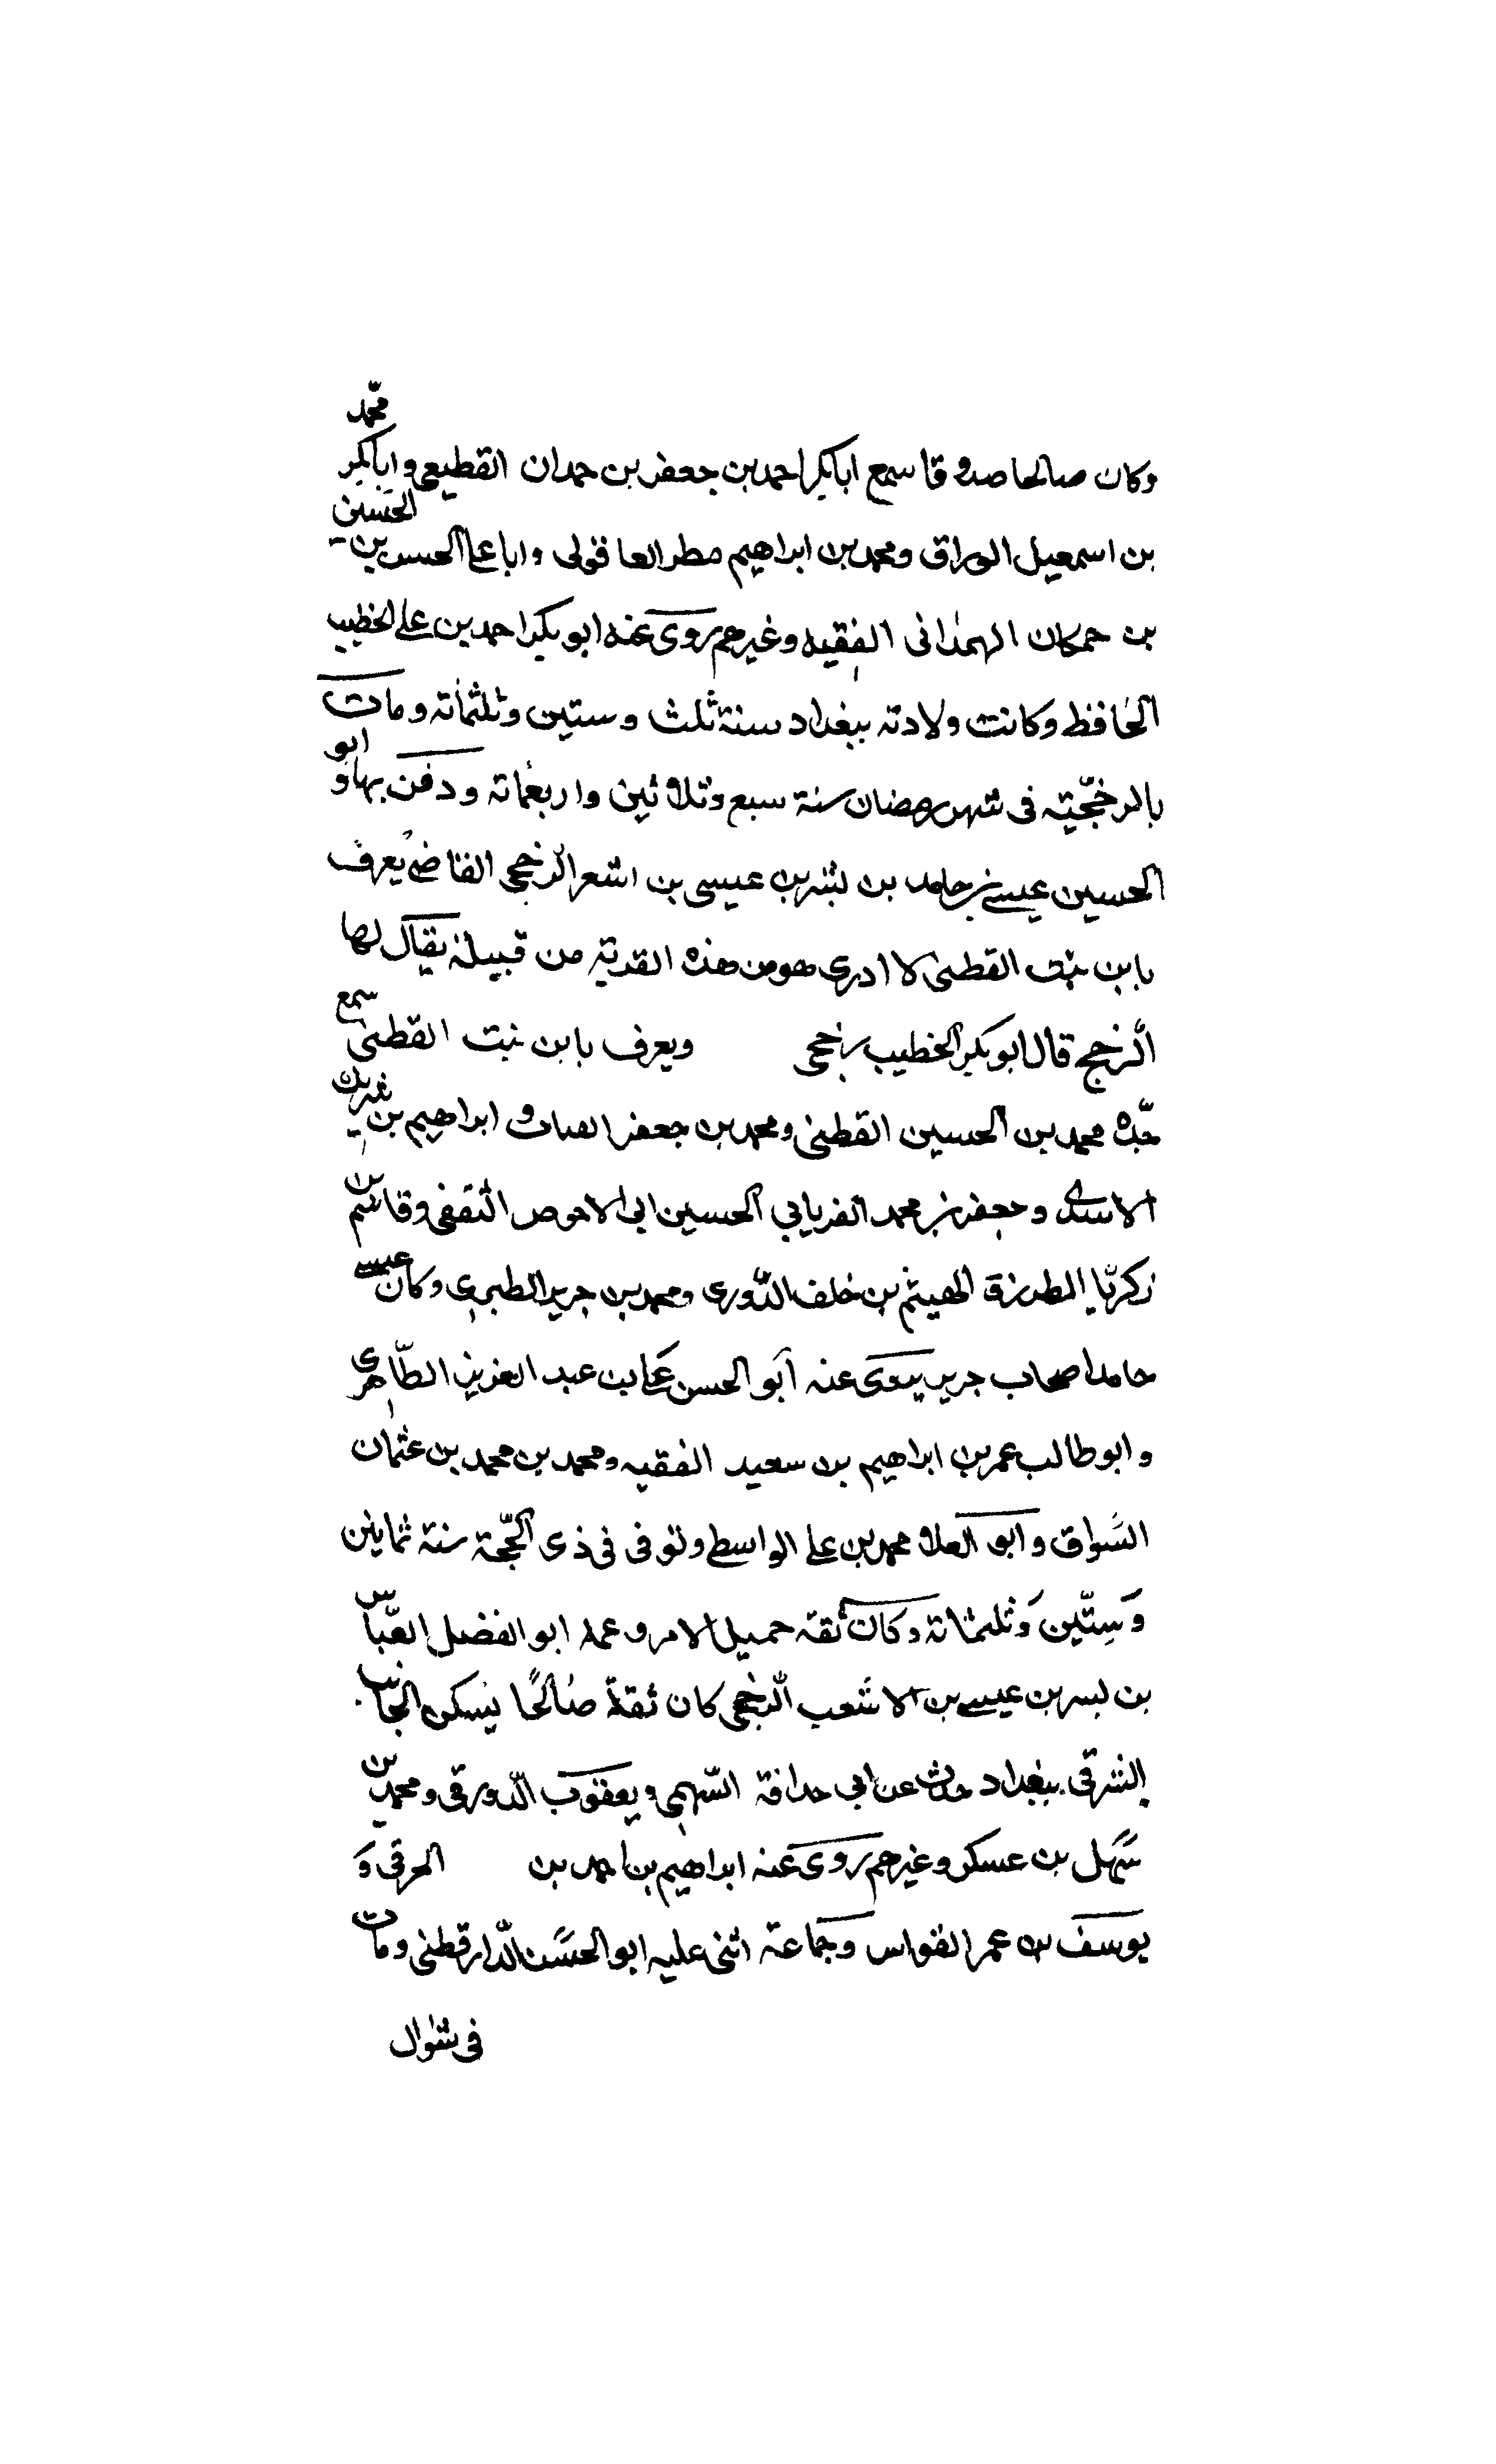 وكان صالحا صدوقا سمع ابابكر احمد بن جعفر بن حمدان القطيعى وابابكر محمد
بن اسمعيل الوراق ومحمد بن ابراهيم مطر العاقولى واباعلى الحسن بن الحسين
بن حمكان الهمذانى الفقيه وغيرهم روى عنه ابو بكر احمد بن على الخطيب
الحافظ وكانت ولادته ببغداد سنة ثلث وستين وثلثماته ومات
بالرخجّيته فى شهر رمضان سنة سبع وثلاثين واربعماته ودفن بها وابو
الحسين عيسى بن حامد بن بشر بن عيسى بن اشعر الرّخجى القاضى يعرف
بابن بنت القطنى لا ادرى هو من هذه القرية من قبيلة يقال لها
الرّخج قال ابو بكر الخطيب رخجى ويعرف بابن نبت القطنى سمع
جدّه محمد بن الحسين القطنى ومحمد بن جعفر القتات و ابراهيم بن شريك
الاسدى وجعفر بن محمد الفريابي الحسين ابى الاحوص الثقفى وقاسم بن
زكريّا المطرزة الهيثم بن خلف الدّورى ومحمد بن جرير الطبرى وكان عيسى
حامد اصحاب جرير يروى عنه ابو الحسن على بن عبد العزيز الطّاهرى
وابو طالب عمر بن ابراهيم بن سعيد الفقيه ومحمد بن محمد بن عثمان
السَّواق وابو العلا محمد بن على الواسطى وتوفى فى ذى الحجّة سنة ثمانين
وَسِتّين وَثلثماتة وكان ثقة جميل الامر وعمه ابو الفضل العبّاس
بن بسر بن عيسى بن الاشعب الرّخجى كان ثقة صالحًا يسكن الجانب
الشرقى ببغداد حدث عن ابى حدافة السّهمى ويعقوب الدّورقى ومحمد بن
سَهل بن عسكر وغيرهم روى عنه ابراهيم بن احمد بن الخرقى وَ
يوسف بن عمر القواس وجماعة اثنى عليه ابو الحسَن الدّارقطنى ومات
فى شوال